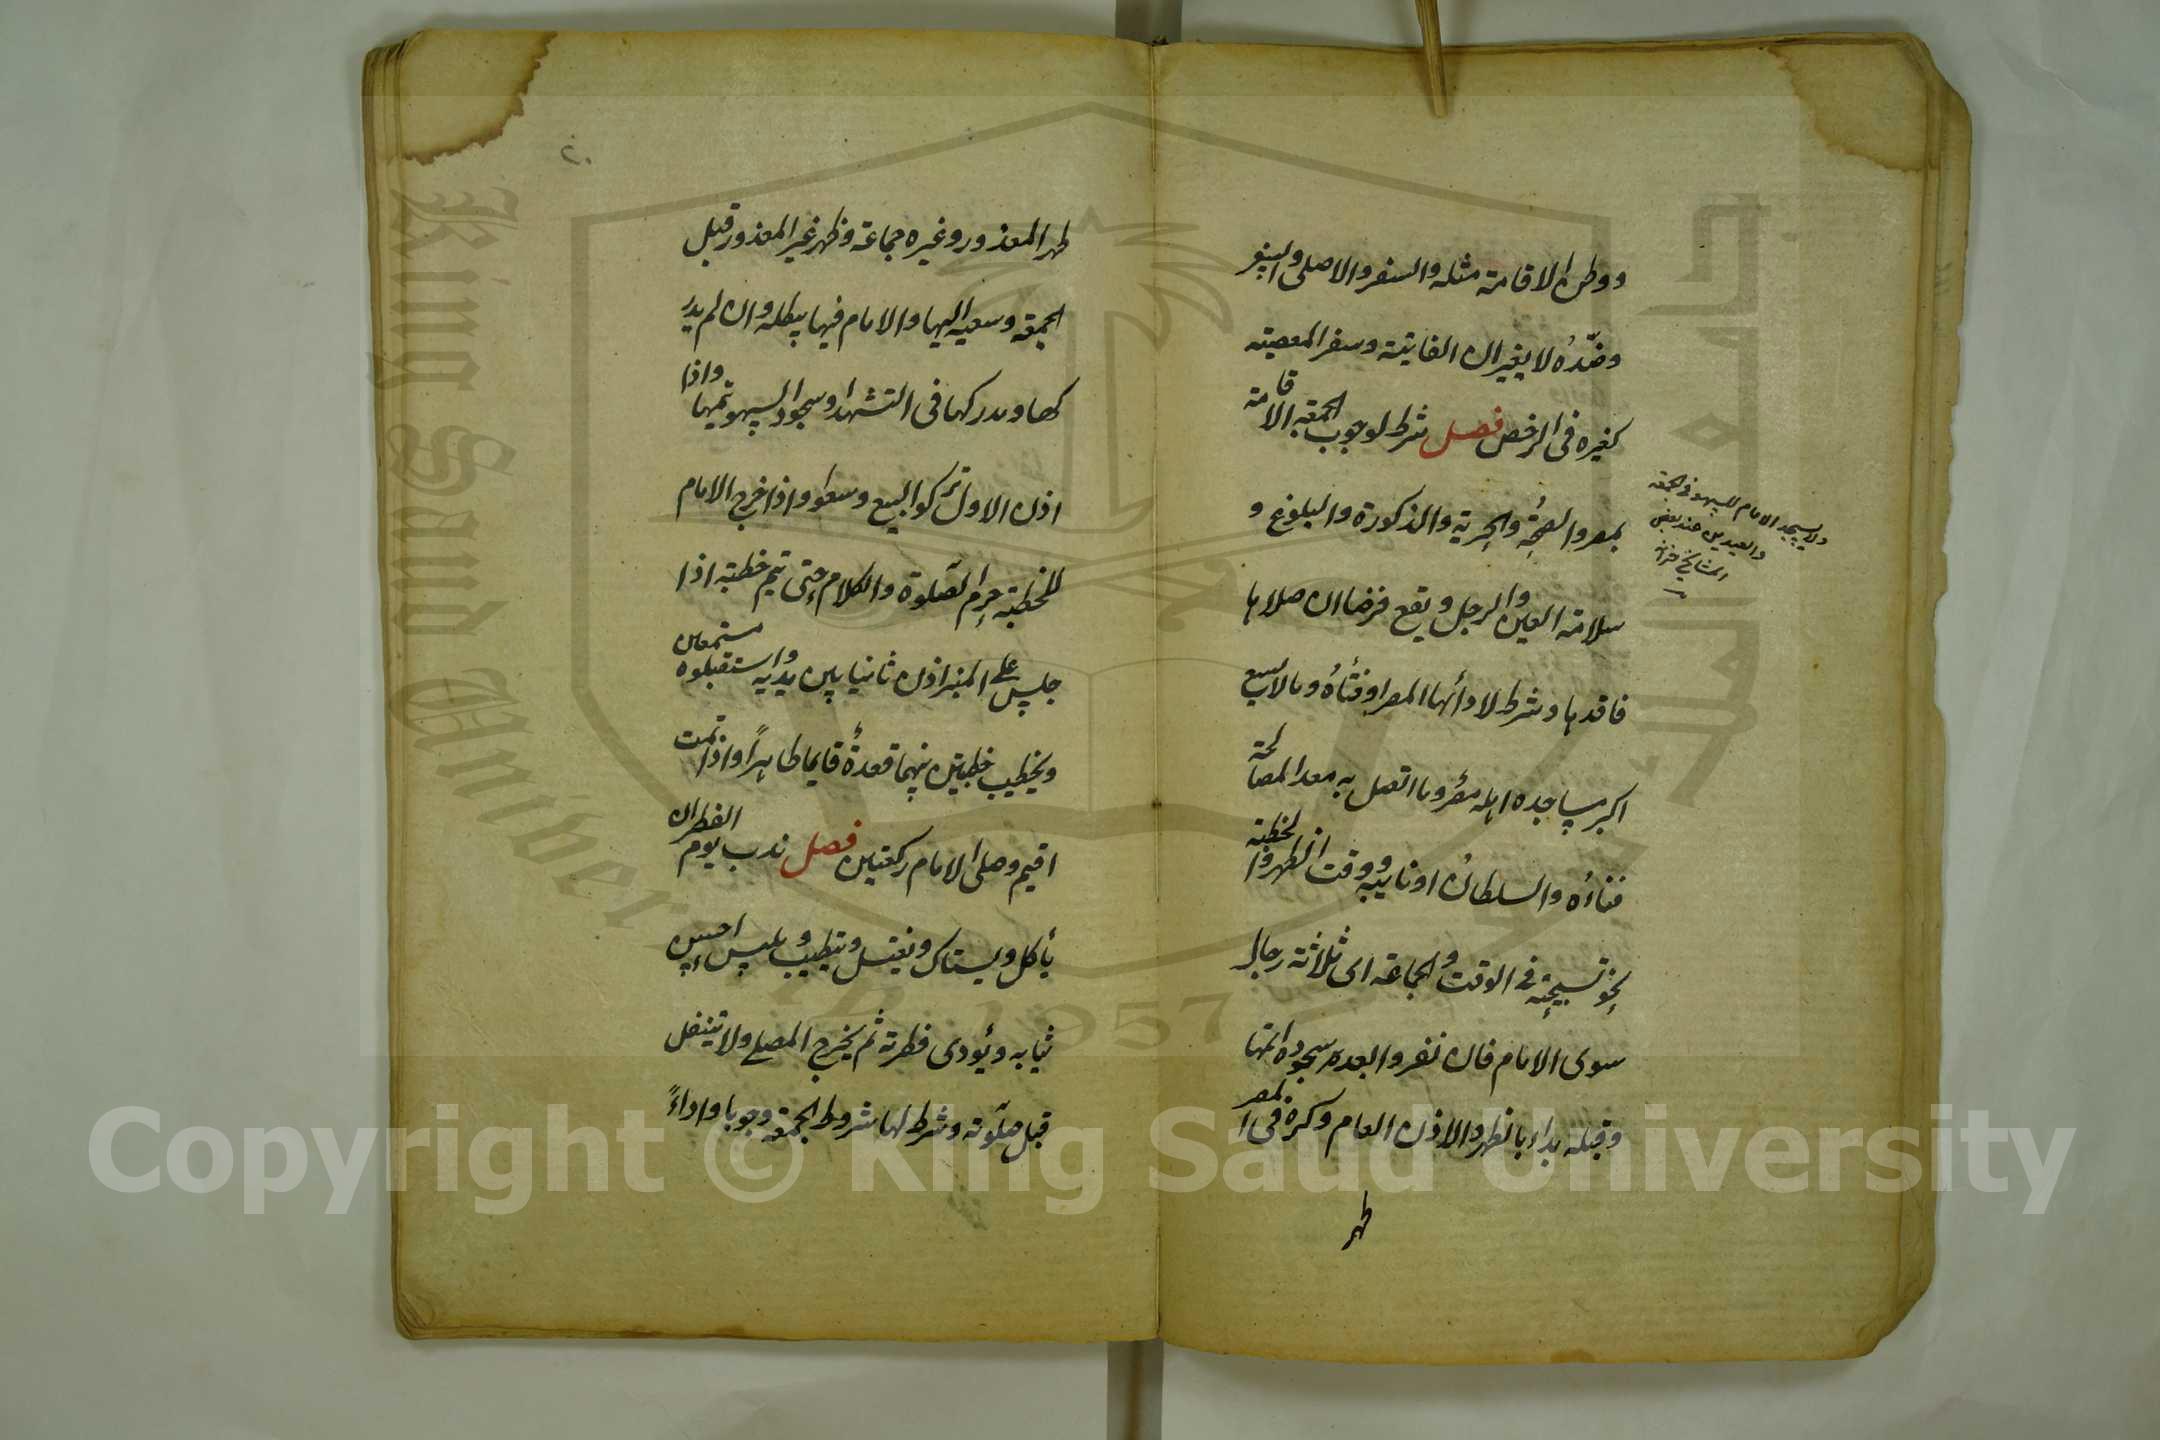 ووطن الاقامة مثله والسفر والاصلى والسفر
وضدّه لا يغيران الفايتة وسفر المعصيته
كغيره فى الرخص فصل شرط لوجوب الجمعة الاقامة
بمصر والصحة والحرية والذكورة والبلوغ و
سلامة العين والرجل ويقع فرضا ان صلاها
فاقدها وشرط لادائها المصر او فناؤه وما لا يسع
اكبر مساجده اهله مصر وما اتصل به معد المصالحة
فناؤه والسلطان او نايبه ووقت الظهر والخطبة
نحو تسبيحة فى الوقت والجماعة اى ثلاثة رجال
سوى الامام فان نفروا بعد سجوده اتمها
وقبله بداء بالظهر والاذن العام وكره فى المصر
ظهر
ولا يسجد الامام للسهو فى الجمعة
والعيدين عند بعض
المشايخ
٢٠
ظهر المعذور وغيره جماعة وظهر غير المعذور قبل
الجمعة وسعيه اليها والامام فيها يبطله وان لم يدر
كها ومدركها فى التشهد او سجود السهو يتمها واذا
اذن الاول تركوا البيع وسعوا واذا خرج الامام
للخطبة حرم الصلوة والكلام حتى يتم خطبته اذا
جلس على المنبر اذن ثانيا بين يديه واستقبلوه مستمعين
ويخطب خطبتين بينهما قعدة قايما طاهرًا واذا تمت
اقيم وصلى الامام ركعتين فصل ندب يوم الفطر ان
يأكل ويستاك ويغتسل ويتطيب ويلبس احسن
ثيابه ويؤدى فطرته ثم يخرج المصلى ولا يتنفل
قبل صلوته وشرط لها شروط الجمعة وجوبا واداءً
King Saud University
1957
Copyright © King Saud University